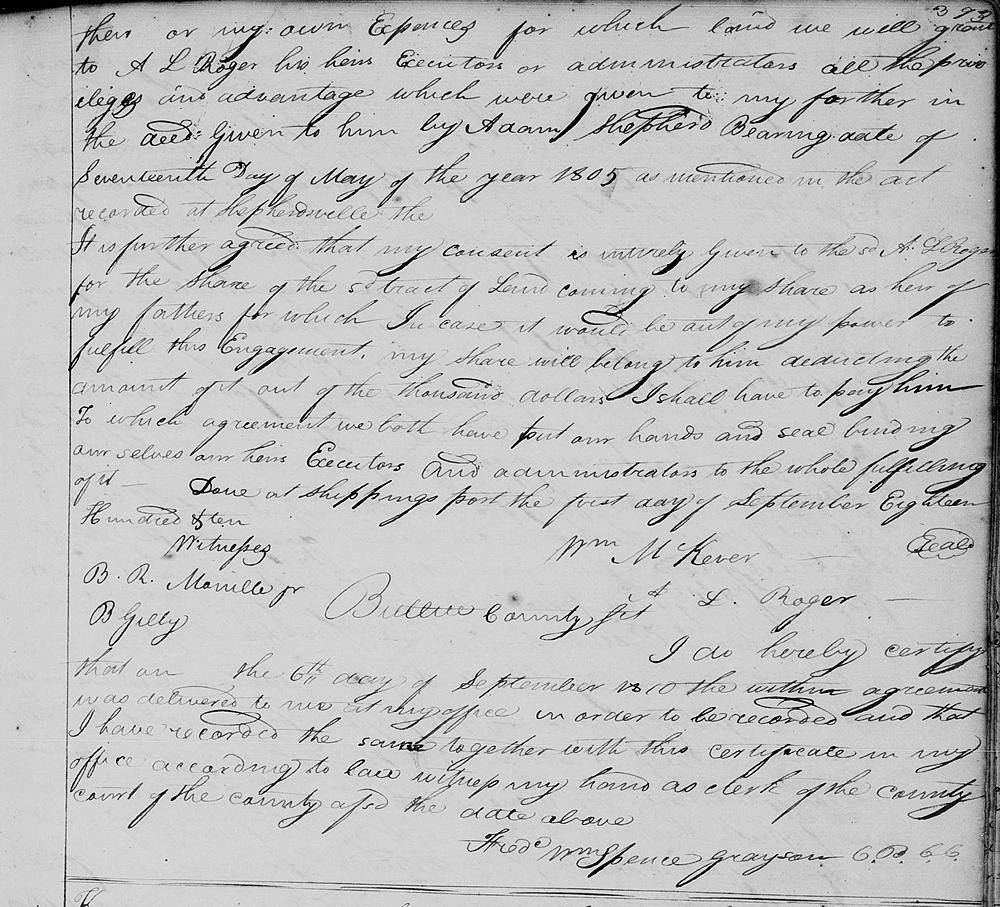 393
their or my own Expences for which land we will grant
to A L Roger his heirs Executors or administrators all the priv
ileges and advantage which were given to my farther in
the deed Given to him by Adam Shepherd Bearing date of
Seventeenth Day of May of the year 1805 as mentioned in the act
recorded at Shepherdsville the
It is further agreed that my consent is intirely given to the sd A. L Roger
for the share of the sd tract of Land coming to my share as heir of
my fathers for which In case it would be out of my power to
fulfill this Engagement, my share will belong to him deducting the
amount of it out of the thousand dollars I shall have to pay him
To which agreement we both have put our hands and seal binding
our selves our heirs Executors and administrators to the whole fulfilling
of it — Done at Shippings port the first day of September Eighteen
Hundred & ten
Witnesses Wm McKever — Seal
B. R. Monille jr A L. Roger —
B Gilly Bullitt County Sct
I do hereby certify
that on the 6th day of September 1810 the within agreement
was delivered to me at my office in order to be recorded and that
I have recorded the same together with this certificate in my
office according to law witness my hand as clerk of the county
court of the county afsd the date above
Fredc Wm Spence Grayson C. B. C. C.